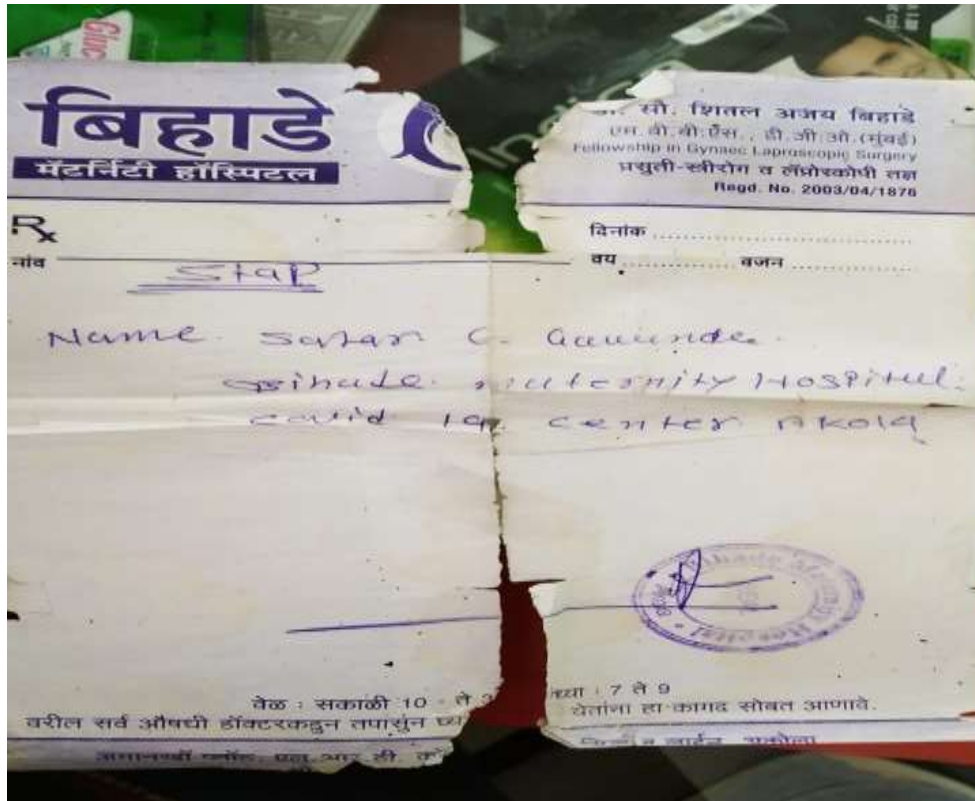 बिहाडे
मॅटर्निटी हॉस्पिटल
सौ. शितल अजय बिहाडे
एम.बी.बी.एस., डी.जी.ओ.(मुंबई)
Fellowship in Gynaec Laproscopic Surgery
प्रसुती-स्त्रीरोग व लॅप्रोस्कोपी तज्ञ
Regd. No. 2003/04/1876
Rx
दिनांक
नांव
वय वजन
Staf
Name. Satar G.
maternity Hospital.
covid 19 center Akola
वेळ : सकाळी 10 ते 3 ध्या : 7 ते 9
वरील सर्व औषधी डॉक्टरकडुन तपासुन घ्या येतांना हा कागद सोबत आणावे.